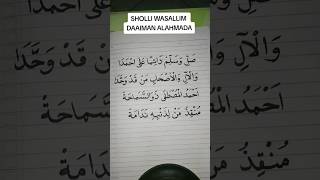 SHOLLI WASALLIM
DAAIMAN ALAHMADA
صَلِّ وَسَلِّمْ دَائِمًا عَلَى احْمَدَا
وَالْآلِ وَالْاَصْحَابِ مَنْ قَدْ وَحَّدَا
اَحْمَدُ الْمُصْطَفَى ذُوالسَّمَاحَةْ
مُنْقِذُ مَنْ لِدَنْبِهِ نَدَامَةْ